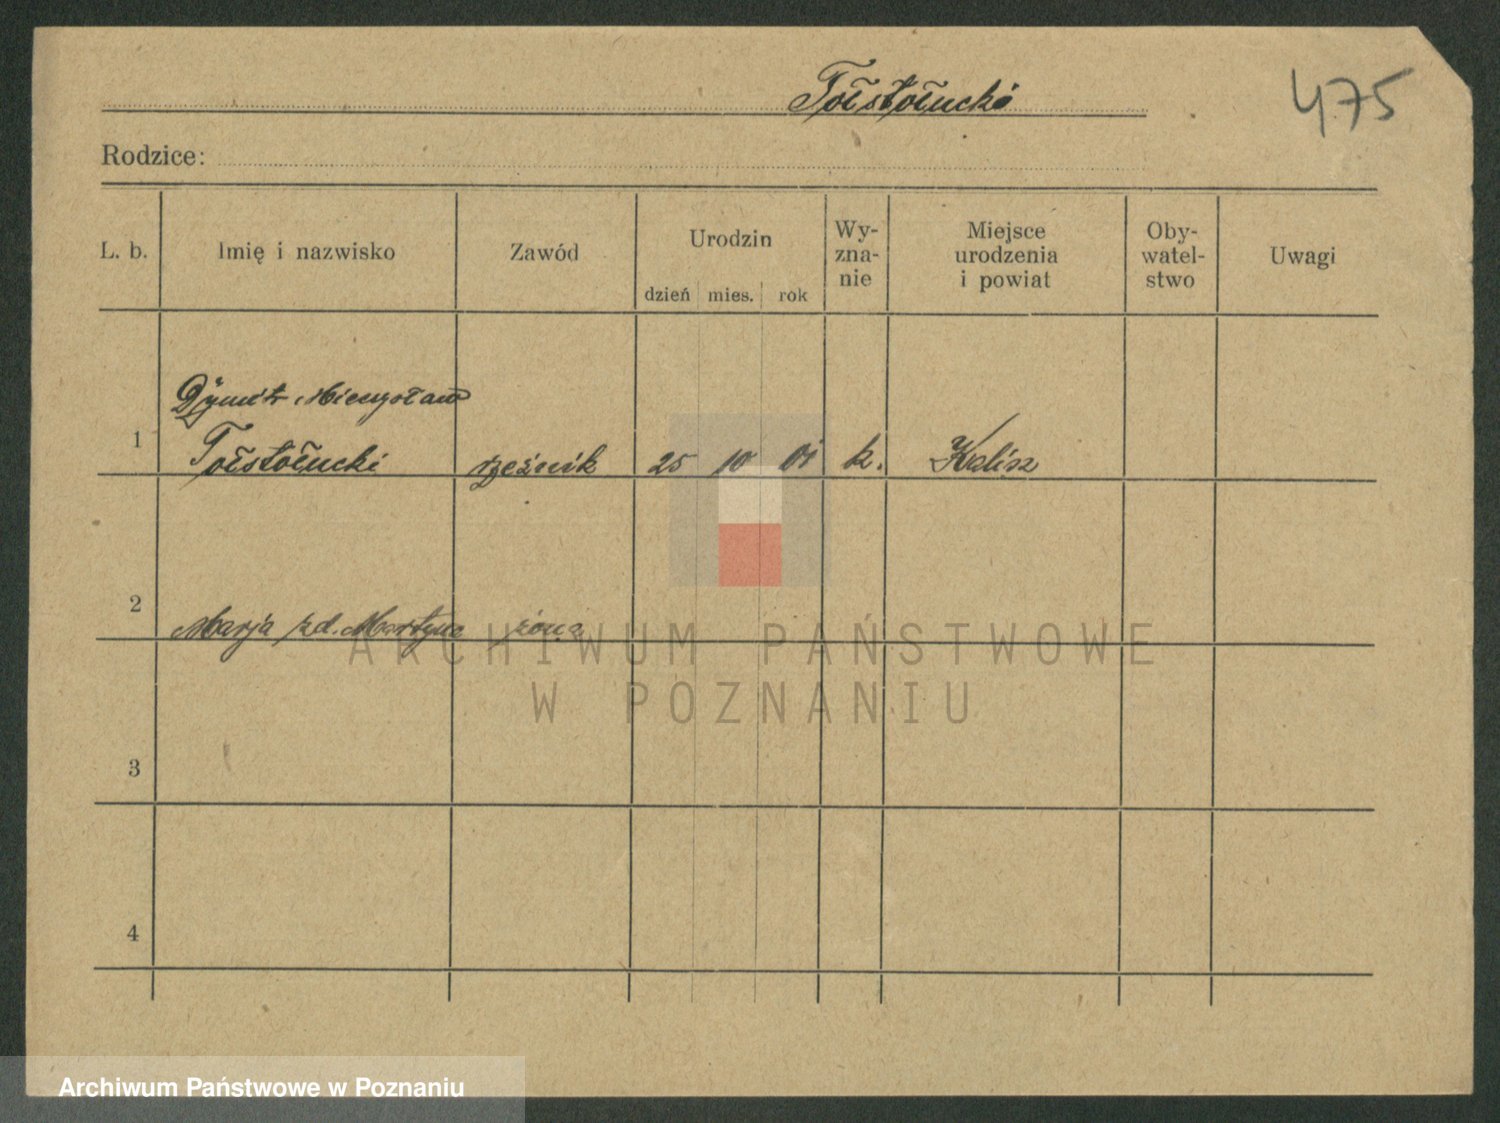 Tołstołucki
475
Rodzice:
L. b.
Imię i nazwisko
Zawód
Urodzin
dzień mies. rok
Wy-
zna-
nie
Miejsce
urodzenia
i powiat
Oby-
watel-
stwo
Uwagi
Dymitr Mieczysław
1 Tołstołucki rzeźnik 25 10 01 k. Kalisz
2
Marja zd. Martyna żona
ARCHIWUM PAŃSTWOWE
W POZNANIU
3
4
Archiwum Państwowe w Poznaniu